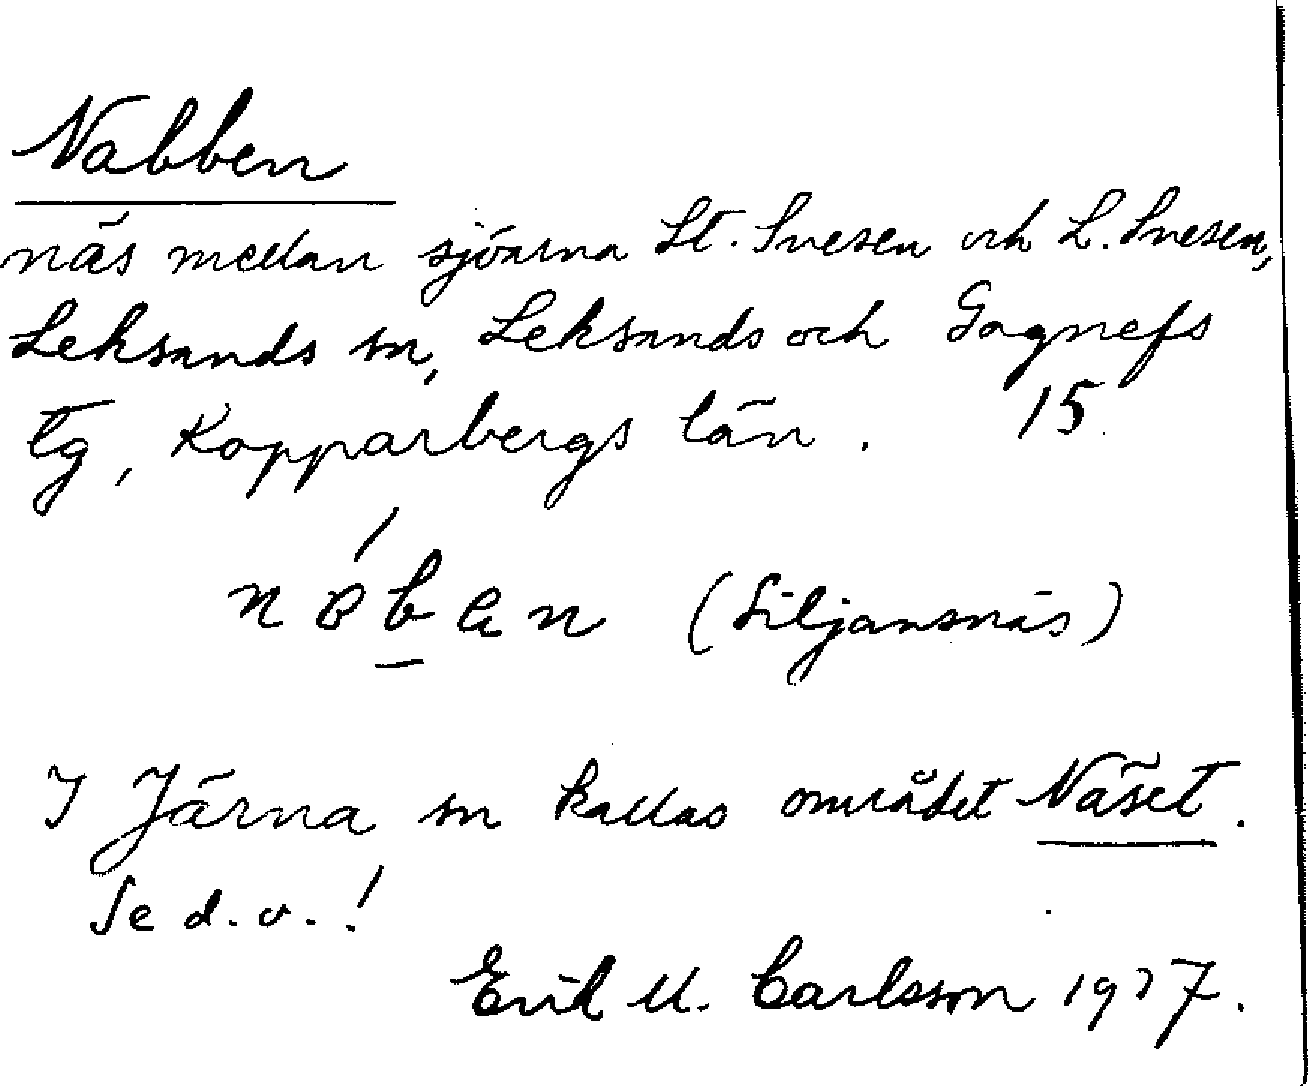 Nabben
näs mellan sjöarna St. Snesen och L. Snesen,
Leksands sn, Leksands och Gagnefs
tg, Kopparbergs län. 15
(Siljansnäs)
I Järna sn kallas området Näset.
Se d. o.!
Erik M. Carlsson 1927.